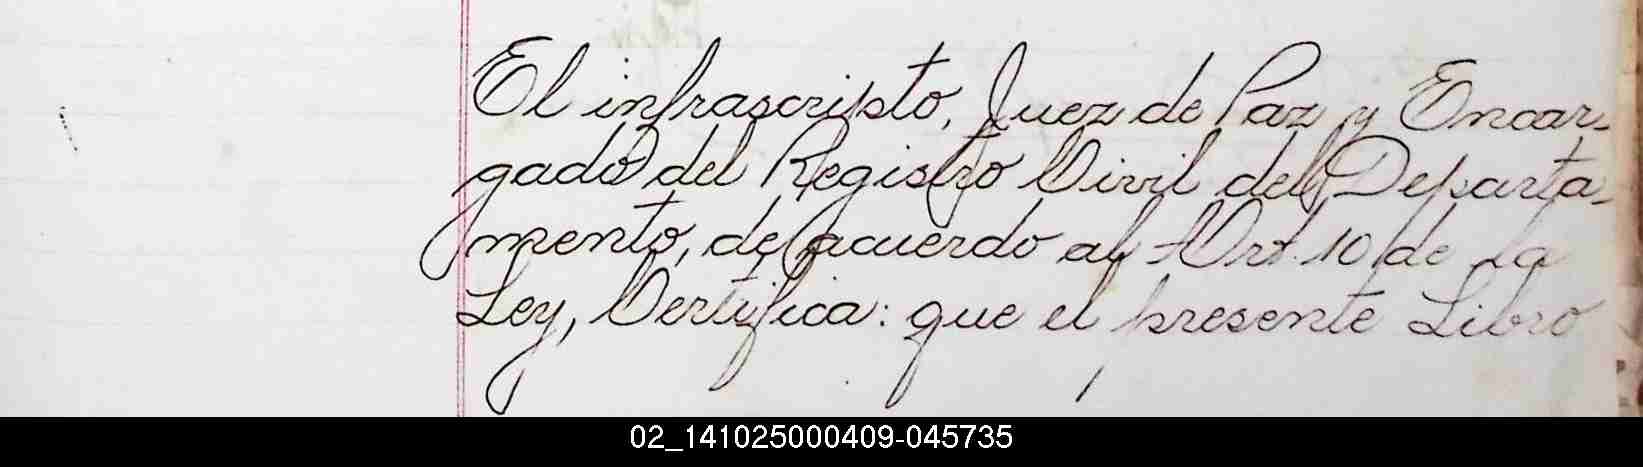 El infrascripto, Juez de Paz y Encar-
gado del Registro Civil del Departa-
mento, de acuerdo al Art. 10 de la
Ley, Certifica: que el presente Libro
02_141025000409-045735